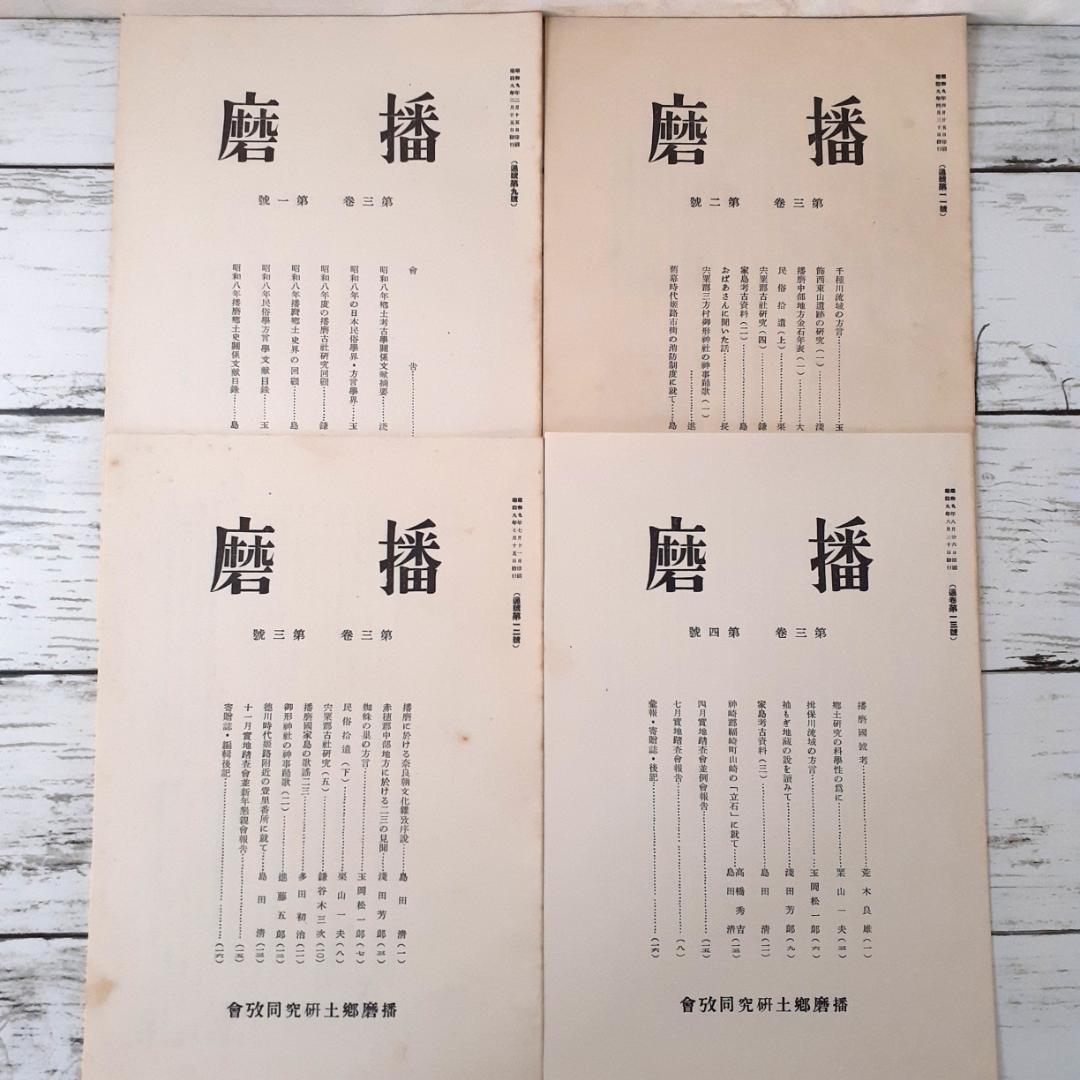 昭和九年三月十五日發行
(通號第九號)
播磨
第三卷 第一號
會告
昭和八年鄕土考古學關係文献摘要……淺
昭和八年の日本民俗學界・方言學界……玉
昭和八年度の播磨古社硏究回顧……鎌
昭和八年播磨鄕土史界の回顧……島
昭和八年民俗學方言學文献目錄……玉
昭和八年播磨鄕土史關係文献目錄……島
昭和九年四月廿五日印刷
昭和九年四月三十日發行
(通號第一一號)
播磨
第三卷 第二號
千種川流域の方言……玉
飾西東山遺跡の硏究(一)……淺
播磨中部地方金石年表(一)……大
民俗拾遺(上)……栗
宍粟郡古社硏究(四)……鎌
家島考古資料(二)……島
おばあさんに聞いた話……長
宍粟郡三方村御形神社の神事踊歌(一)……進
舊幕時代姬路市街の消防制度に就て……島
昭和九年七月十一日印刷
昭和九年七月十五日發行
(通號第一二號)
播磨
第三卷 第三號
播磨に於ける奈良朝文化雜攷序說……島田淸(一)
赤穗郡中部地方に於ける二三の見聞……淺田芳郞(三)
蜘蛛の巢の方言……玉岡松一郞(七)
民俗拾遺(下)……栗山一夫(八)
宍粟郡古社硏究(五)……鎌谷木三次(一〇)
播磨國家島の歌謠二三……多田初治(二)
御形神社の神事踊歌(二)……進藤五郞(三)
德川時代姬路附近の壹里番所に就て……島田淸(一三)
十一月實地踏査會並新年懇親會報告……(一五)
寄贈誌・編輯後記……(一六)
播磨鄕土硏究同攷會
昭和九年八月廿六日印刷
昭和九年八月三十日發行
(通卷第一三號)
播磨
第三卷 第四號
播磨國號考……荒木良雄(一)
鄕土硏究の科學性の爲に……栗山一夫(三)
揖保川流域の方言……玉岡松一郞(六)
袖もぎ地藏の說を讀みて……淺田芳郞(九)
家島考古資料(三)……島田淸(二)
神崎郡福崎町山崎の「立石」に就て……高橋秀吉 島田淸(三)
四月實地踏査會並例會報告……(一五)
七月實地踏査會報告……(一八)
彙報・寄贈誌・後記……(一六)
播磨鄕土硏究同攷會